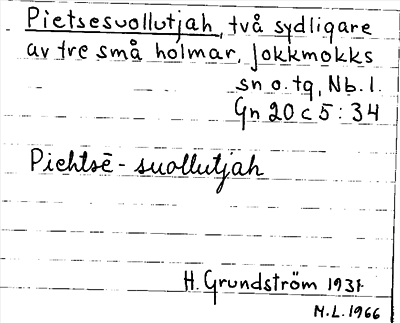 Pietsesuollutjah, två sydligare
av tre små holmar, Jokkmokks
sn o. tg, Nb. l.
Gn 20 c 5 : 34
Piehtsē - suollutjah
H. Grundström 1931
M.L. 1966